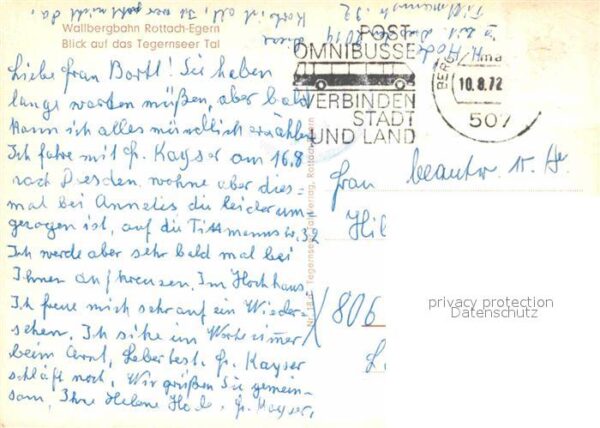 Wallbergbahn Rottach-Egern
Blick auf das Tegernseer Tal
Liebe Frau Bartl! Sie haben
lange warten müßen, aber bald
kann ich alles mündlich erzählen
Ich fahre mit Fr. Kayser am 16.8
nach Dresden, wohne aber dies-
mal bei Annelis die leider um-
gezogen ist, auf die Tittmannstr. 32
Ich werde aber sehr bald mal bei
Ihnen aufkreuzen. Im Hochhaus
Ich freue mich sehr auf ein Wieder-
sehen. Ich sitze im Wartezimmer
beim Arzt, Lebertest. Fr. Kayser
schläft noch. Wir grüßen Sie gemein-
sam, Ihre Helene Fr. Kayser.
POST-
OMNIBUSSE
VERBINDEN
STADT
UND LAND
10.8.72
507
beantw.
Frau
Hil
806
privacy protection
Datenschutz